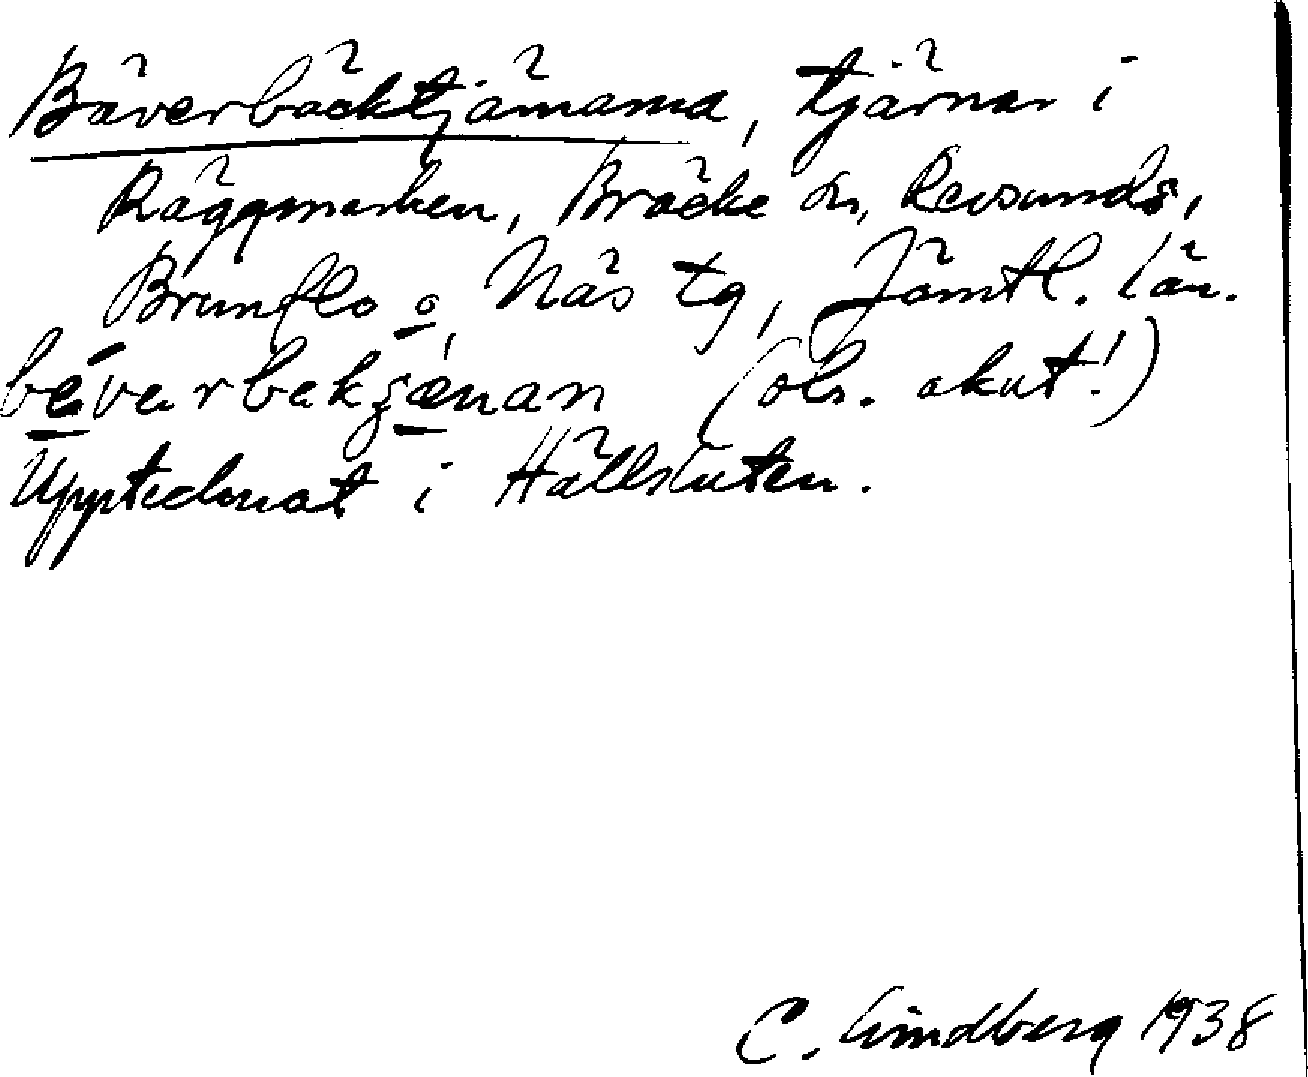 Bäverbäcktjärnarna, tjärnar i
Räggmarken, Bräcke sn, Revsunds,
Brunflo o Näs tg, Jämtl. län.
bé̱vɐrbɛkʂæ̱̀nan (obs. akut!)
Upptecknat i Hällsluten.
C. Lindberg 1938